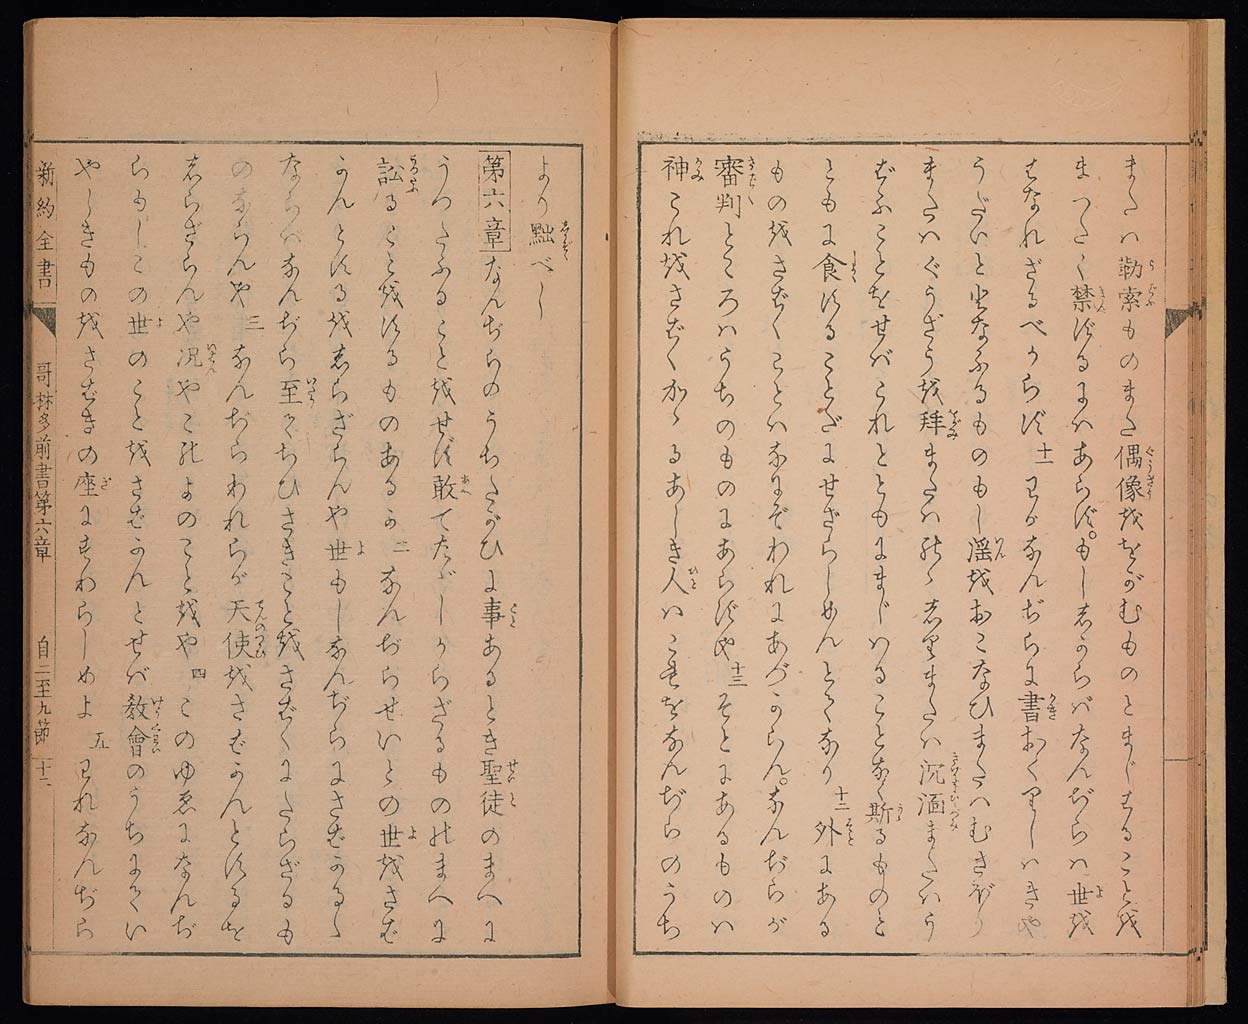 または勒索ものまた偶像をおがむものとまじはることを
まつたく禁ずるにはあらず。もししからばなんぢらは世を
はなれざるべからず 十一 わがなんぢらに書おくりしはきや
うだいととなふるもののもし淫をおこなひまたはむさぼり
またはぐうざうを拜またはののしりまたは沉湎またはう
ばふことをせばこれとともにまじはることなく斯るものと
ともに食することだにせざらしめんとてなり 十二 外にある
ものをさばくことはなにぞわれにあづからん。なんぢらが
審判ところはうちのものにあらずや 十三 そとにあるものは
神これをさばくかかるあしき人はこれをなんぢらのうち
より黜べし
第六章 なんぢらのうちたがひに事あるとき聖徒のまへに
うつたふることをせず敢てただしからざるもののまへに
訟ることをするものあるか 二 なんぢらせいとの世をさば
かんとするをしらざらんや世もしなんぢらにさばかるる
ならばなんぢら至てちひさきことをさばくにたらざるも
のならんや 三 なんぢらわれらが天使をさばかんとするを
しらざらんや况やこのよのことをや 四 このゆゑになんぢ
らもしこの世のことをさばかんとせば教會のうちにては
やしきものをさばきの座にすわらしめよ 五 われなんぢら
新約全書 哥林多前書第六章 自二至九節 十二